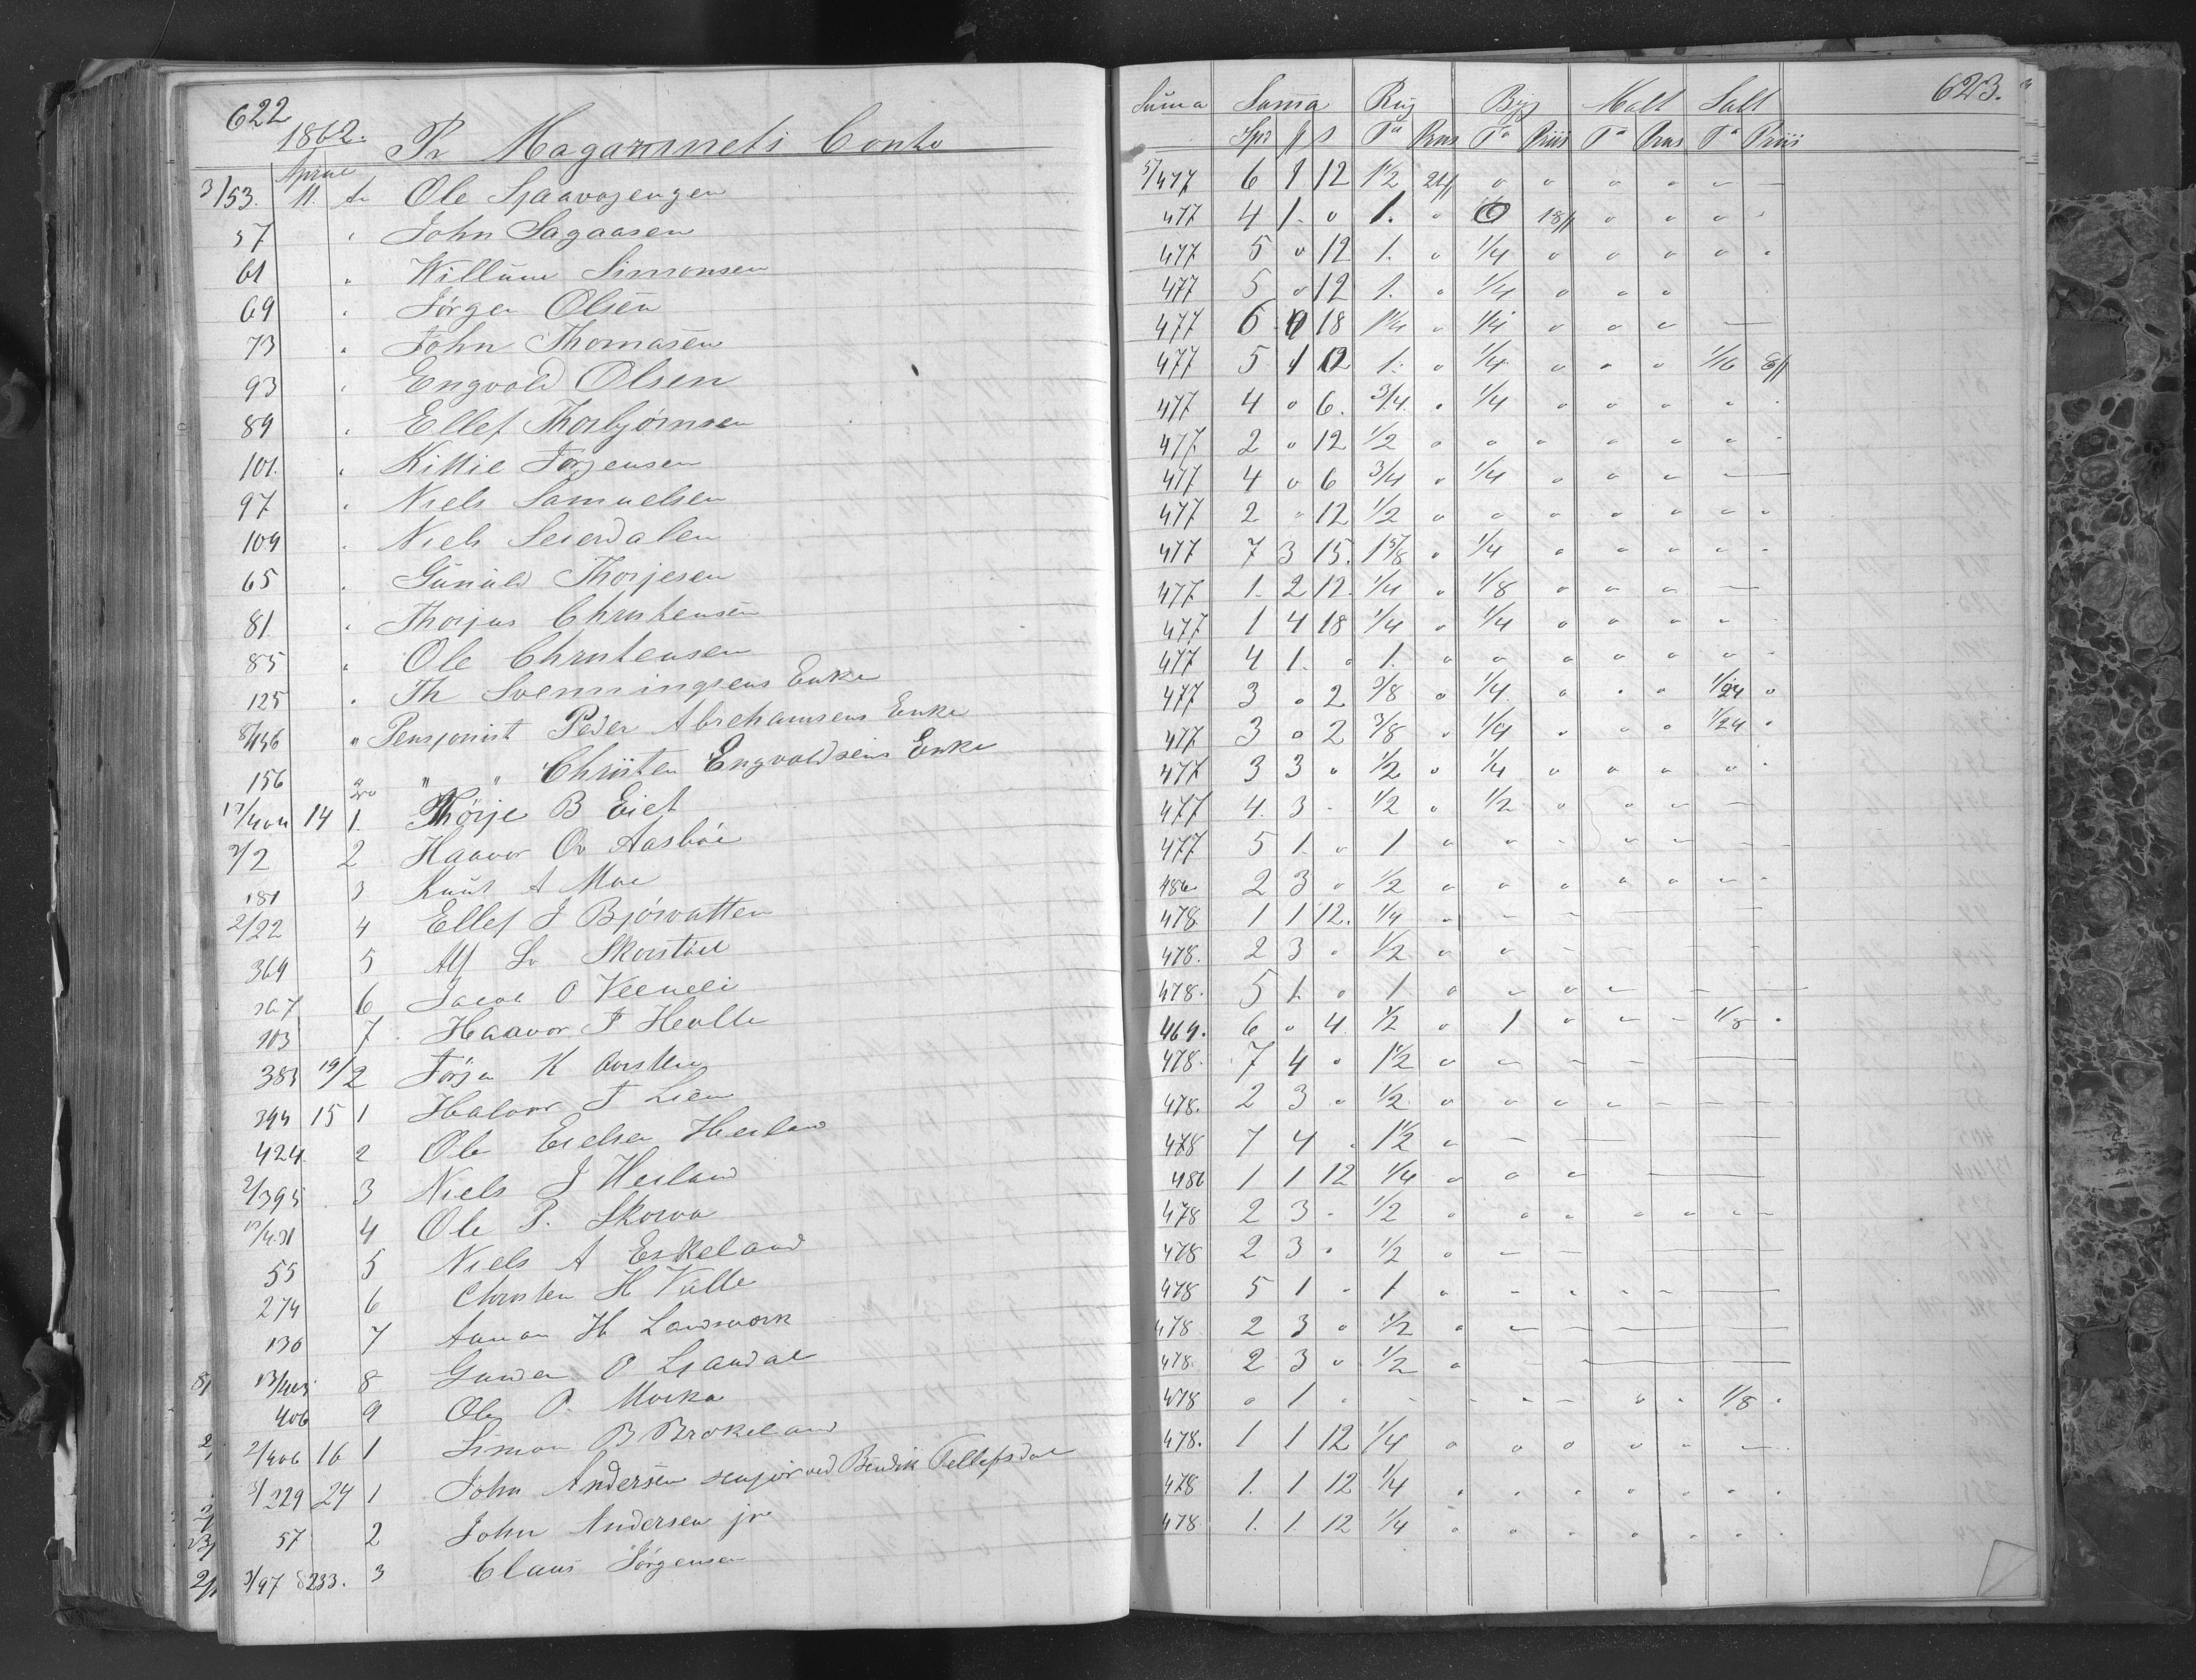 622
1862. Pr Magazinets Conto
April
3/53. 11. to Ole Spaavogengen
57 " John Sagaasen
61 " Willum Simonsen
69 " Jörgen Olsen
73 " John Thomasen
93 " Engvold Olsen
89 " Ellef Thorbjörnsen
101. " Kittil Jörgensen
97 " Niels Samuelsen
109 " Niels Seierdalen
65 " Gunuld Thorjesen
81. " Thorjus Christensen
85 " Ole Christensen
125 " Th Svenningsens Enke
8/456 " Pensjonist Peder Abrehamsens Enke
156 " " " Christen Engvoldsens Enke
17/404 14 1. Thörje B Eiet
2/2 2 Haavor Ov Aasböe
181 3 Knut A Moe
2/22 4 Ellef J Bjorvatten
364 5 Alf Sv Skorstöel
367 6 Jacob O
103 7 Haavor T Hevlle
383 19/2 Törje K
394 15 1 Halvor T Lien
424. 2 Ole Eielsen Heiland
2/395 3 Niels J Heiland
4 Ole P. Skorva
55 5 Niels A Eskeland
274 6 Christen H Valle
130 7 Aanon H Landsverk
13/403 8 Gunder O Ljaudal
406 9 Ole P. Morka
2/406 16 1 Simon B Brokeland
3/229 24 1 John Andersen senjor ved Bendik Tellefsdal
57 2 John Andersen jr
3/97 8233. 3 Claus Jörgensen
623.
Suma Suma Rug Byg Malt Salt
Spd ƒ s Tø Priis Tø Priis Tø Priis Tø Priis
5/477 6 1 12 1½ 24ƒ " " " " " —
477 4 1. " 1. " 0 18ƒ " " " "
477 5 " 12 1. " 1/4 " " " " "
477 5 " 12 1. " 1/4 " " "
477 6 0 18 1¼ " 1/4 " " " —
477 5 1 12 1. " 1/4 " " " 1/16 8ƒ
477 4 " 6. 3/4. " 1/4 " " " " "
477. 2 " 12 1/2 " " " " " " "
477 4 " 6 3/4 " 1/4 " " " —
477 2 " 12 1/2 " " " " " " "
477 7 3 15. 1 5/8 " 1/4 " " " " "
477 1. 2 12. 1/4 " 1/8 " " " —
477 1 4 18 1/4 " 1/4 " " " " "
477 4 1. " 1. " " " " " " "
477 3 " 2 3/8 " 1/4. " " " 1/24 "
477 3 " 2 3/8 " 1/4 " " " 1/24 "
477 3 3 " 1/2 " 1/4 " " " " "
477 4. 3 " 1/2 " 1/2 " " " —
477 5 1. " 1 " " " " " " "
486 2 3 " 1/2 " " " " " " "
478. 1 1 12. 1/4 " " " —
478. 2 3 " 1/2 " " " — —
478. 5 1. " 1 " " " " — —
469. 6 " 4. 1/2 " 1 " " " 1/8 "
478. 7 4 " 1½ " " " " —
478. 2 3 " 1/2 " " " " " " —
478 7 4 " 1½ " " — —
486 1 1 12 1/4 " " " — —
478 2 3 " 1/2 " " " " " " "
478 2 3 " 1/2 " — — —
478 5 1 " 1 " " " " " —
478 2 3 " 1/2 " — — —
478. 2 3 " 1/2 " " — —
478 " 1 " " " " " " " 1/8 "
478. 1 1 12 1/4 " " " " " —
478 1. 1 12 1/4 " " " " " " "
478 1. 1. 12 1/4 " " " " " " "